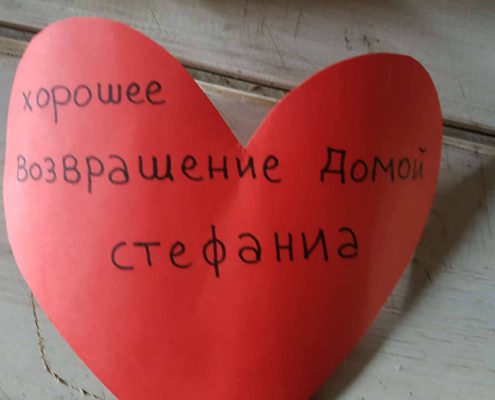 хорошее
возвращение Домой
стефаниа